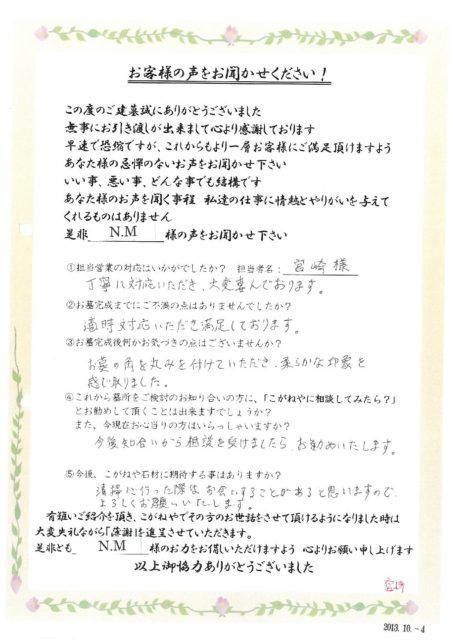 お客様の声をお聞かせください！
この度のご建墓誠にありがとうございました
無事にお引き渡しが出来まして心より感謝しております
早速で恐縮ですが、これからもより一層お客様にご満足頂けますよう
あなた様の忌憚のないお声をお聞かせ下さい
いい事、悪い事、どんな事でも結構です
あなた様のお声を聞く事程 私達の仕事に情熱とやりがいを与えて
くれるものはありません
是非 N.M 様の声をお聞かせ下さい
①担当営業の対応はいかがでしたか？ 担当者名： 宮崎様
丁寧に対応いただき、大変喜んでおります。
②お墓完成までにご不満の点はありませんでしたか？
適時対応いただき満足しております。
③お墓完成後何かお気づきの点はございませんか？
お墓の角を丸みを付けていただき、柔らかな印象を
感じ取りました。
④これから墓所をご検討のお知り合いの方に、「こがねやに相談してみたら？」
とお勧めして頂くことは出来ますでしょうか？
また、今現在お心当りの方はいらっしゃいますか？
今後知合いから相談を受けましたら、お勧めいたします。
⑤今後、こがねや石材に期待する事はありますか？
清掃に行った際など、お会いすることがあると思いますので、
よろしくお願いいたします。
有難いご紹介を頂き、こがねやでその方のお世話をさせて頂けるようになりました時は
大変失礼ながら「深謝」を進呈させていただきます。
是非とも N.M 様のお力をお借しいただけますよう 心よりお願い申し上げます
以上御協力ありがとうございました
宮崎
2013.10.-4